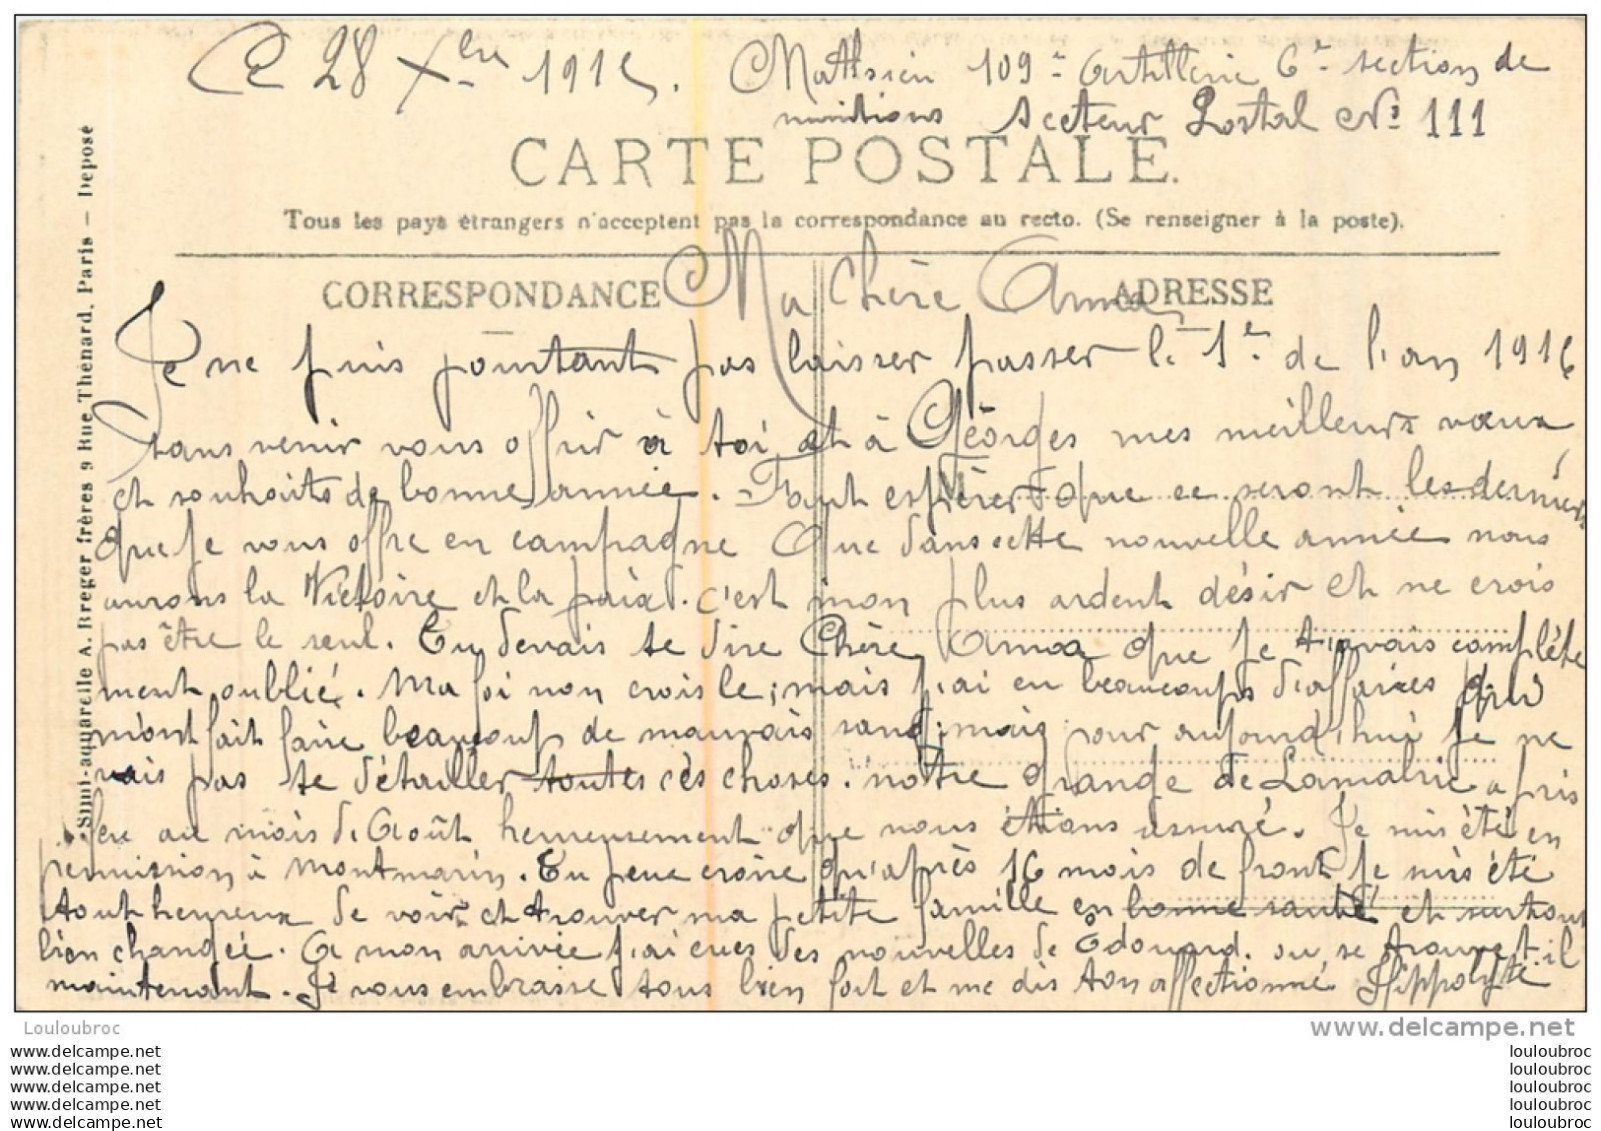 Ce 28 Xbre 1915. Mathieu 109e Artillerie 6e section de
munitions secteur Postal No 111
CARTE POSTALE.
Tous les pays étrangers n'acceptent pas la correspondance au recto. (Se renseigner à la poste).
CORRESPONDANCE
ADRESSE
Simi-aquarelle A. Breger frères 9 Rue Thénard, Paris — Déposé
Ma Chère Anna
Je ne puis pourtant pas laisser passer le 1e de l'an 1916
sans venir vous offrir à toi et à Géorges mes meilleurs vœux
et souhaits de bonne année. Faut espérer que ce seront les derniers
que je vous offre en campagne Que dans cette nouvelle année nous
aurons la Victoire et la paix. c'est mon plus ardent désir et ne crois
pas être le seul. Tu devais te dire Chère Anna que je t'avais complète
ment oublié. Ma foi non crois le; mais j'ai eu beaucoups d'affaires qui
m'ont fait faire beaucoup de mauvais sang, mais pour aujourd'hui je ne
vais pas te détailler toutes ces choses. notre grange de Lamalric a pris
feu au mois d'Août heureusement que nous étions assuré. Je suis été en
permission à Montmarin. Tu peux croire qu'après 16 mois de front je suis été
tout heureux de voir et trouver ma petite famille en bonne santé et surtout
bien changée. A mon arrivée j'ai eues des nouvelles de Édouard. ou se trouvet-il
maintenant. Je vous embrasse tous bien fort et me dis ton affectionné Hippolyte
Louloubroc
www.delcampe.net
www.delcampe.net
www.delcampe.net
www.delcampe.net
www.delcampe.net
www.delcampe.net
louloubroc
louloubroc
louloubroc
louloubroc
louloubroc